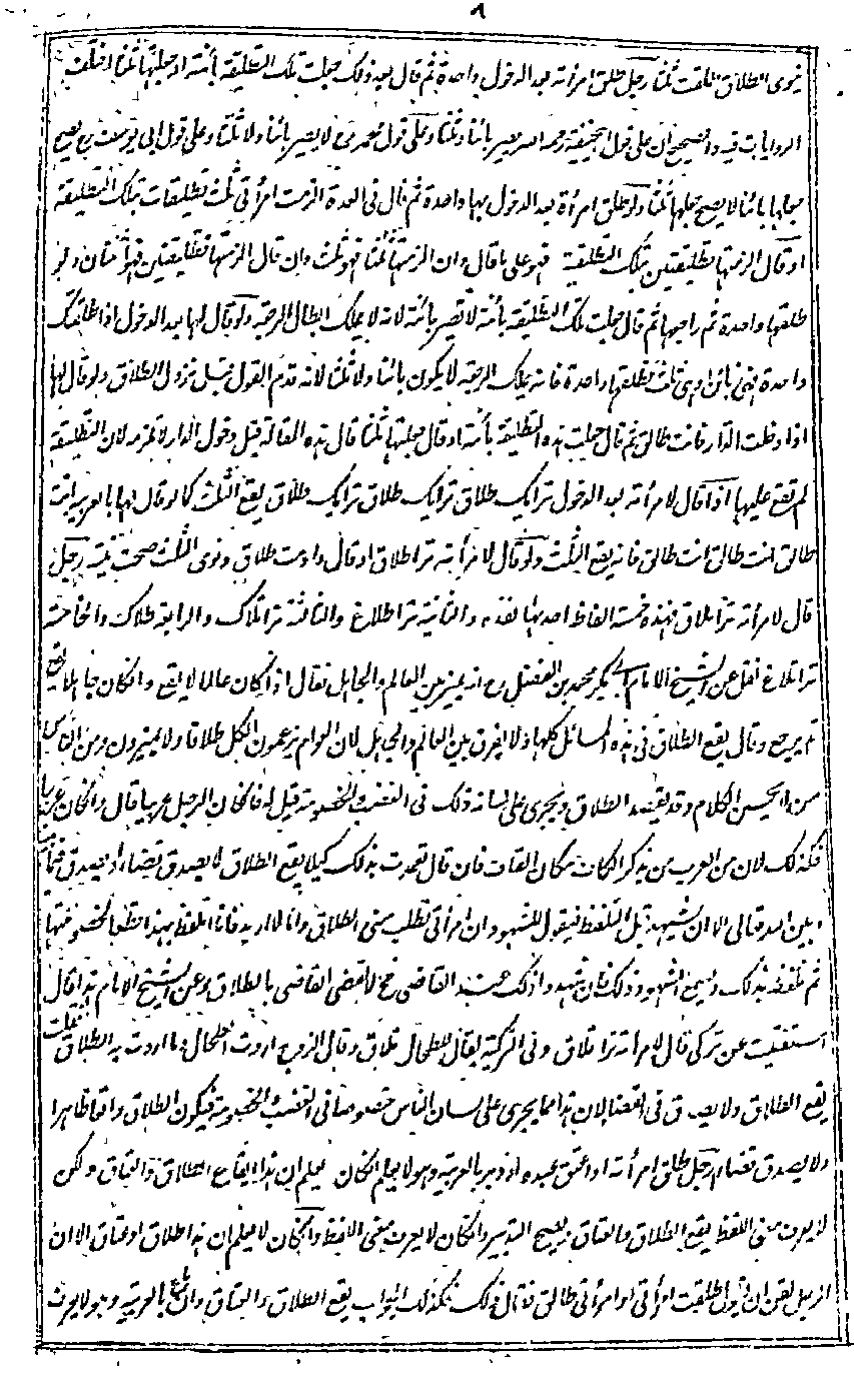 ٨
نوى الطلاق طلقت ثلثا رجل طلق امرأته بعد الدخول واحدة ثم قال بعد ذلك جعلت تلك التطليقة بائنة او جعلتها ثلثا اختلف
الروايات فيه والصحيح ان على قول ابيحنيفة رحمه الله يصير بائنا وثلثا وعلى قول محمد رح لا يصير بائنا ولا ثلثا وعلى قول ابى يوسف رح يصح
جعلها بائنا لا يصح جعلها ثلثا ولو طلق امرأة بعد الدخول بها واحدة ثم قال فى العدة الزمت امرأتى ثلث تطليقات بتلك التطليقة
او قال الزمتها تطليقتين بتلك التطليقة فهو على ما قال وان الزمتها ثلثا فهو ثلث وان قال الزمتها تطليقتين فهو ثنتان ولو
طلقها واحدة ثم راجعها ثم قال جعلت تلك التطليقة بائنة لا تصير بائنة لانه لا يملك ابطال الرجعة ولو قال لها بعد الدخول اذا طلقتك
واحدة فهى بائن او هى ثلث فطلقها واحدة فانه يملك الرجعة لا يكون بائنا ولا ثلثا لانه قدم القول قبل نزول الطلاق ولو قال لها
اذا دخلت الدار فانت طالق ثم قال جعلت هذه التطليقة بائنة او قال جعلتها ثلثا قال هذه المقالة قبل دخول الدار لا تلزمه لان التطليقة
لم تقع عليها اذا قال لامرأته بعد الدخول ترايك طلاق ترايك طلاق ترايك طلاق يقع الثلث كما لو قال لها بالعربية انت
طالق انت طالق انت طالق فانه يقع الثلث ولو قال لامرأته ترا طلاق او قال دادمت طلاق ونوى الثلث صحت نيته رجل
قال لامرأته ترا تلاق فهذه خمسة الفاظ احدها هذه والثانية ترا طلاغ والثالثة ترا تلاك والرابعة طلاك والخامسة
ترا تلاغ نقل عن الشيخ الامام ابى بكر محمد بن الفضل رح انه يميز بين العالم والجاهل فقال اذا كان عالما لا يقع وان كان جاهلا يقع
ثم رجع وقال يقع الطلاق فى هذه المسائل كلها ولا يفرق بين العالم والجاهل لان العوام يزعمون الكل طلاقا ولا يميزون ومن الناس
من لا يحسن الكلام وقد يقصد الطلاق ويجرى على لسانه ذلك فى الغضب والخصومة قيل له فان كان الرجل عربيا قال وان كان عربيا
فكذلك لان من العرب من يذكر الكاف مكان القاف فان قال تعمدت بذلك كيلا يقع الطلاق لا يصدق قضاء ويصدق فيما
وبين الله تعالى الا ان يشهد قبل التلفظ فيقول للشهود ان امرأتى تطلب منى الطلاق وانا لا اريد فانا اتلفظ بهذا قطعا لخصومتها
ثم تلفظ بذلك وسمع الشهود ذلك فان شهدوا ذلك عند القاضى فح لا يقضى القاضى بالطلاق وعن الشيخ الامام هذا قال
استفتيت عن تركى قال لامرأته ترا تلاق وفى التركية يقال للطحال تلاق وقال الزوج اردت الطحال وما اردت به الطلاق فقلت
يقع الطلاق ولا يصدق فى القضاء لان هذا مما يجرى على لسان الناس خصوصا فى الغضب والخصومة فيكون الطلاق واقعا ظاهرا
ولا يصدق قضاء رجل طلق امرأته او اعتق عبده او دبر بالعربية وهو لا يعلم ان كان يعلم ان هذا ايقاع الطلاق والعتاق ولكن
لا يعرف معنى اللفظ يقع الطلاق والعتاق ويصح التدبير وان كان لا يعرف معنى اللفظ وان كان لا يعلم ان هذا طلاق او عتاق الا ان
الرجل لقن ان يقول طلقت امرأتى او امرأتى طالق فقال ذلك فكذلك الجواب يقع الطلاق والعتاق وان بالعربية وهو لا يعرف